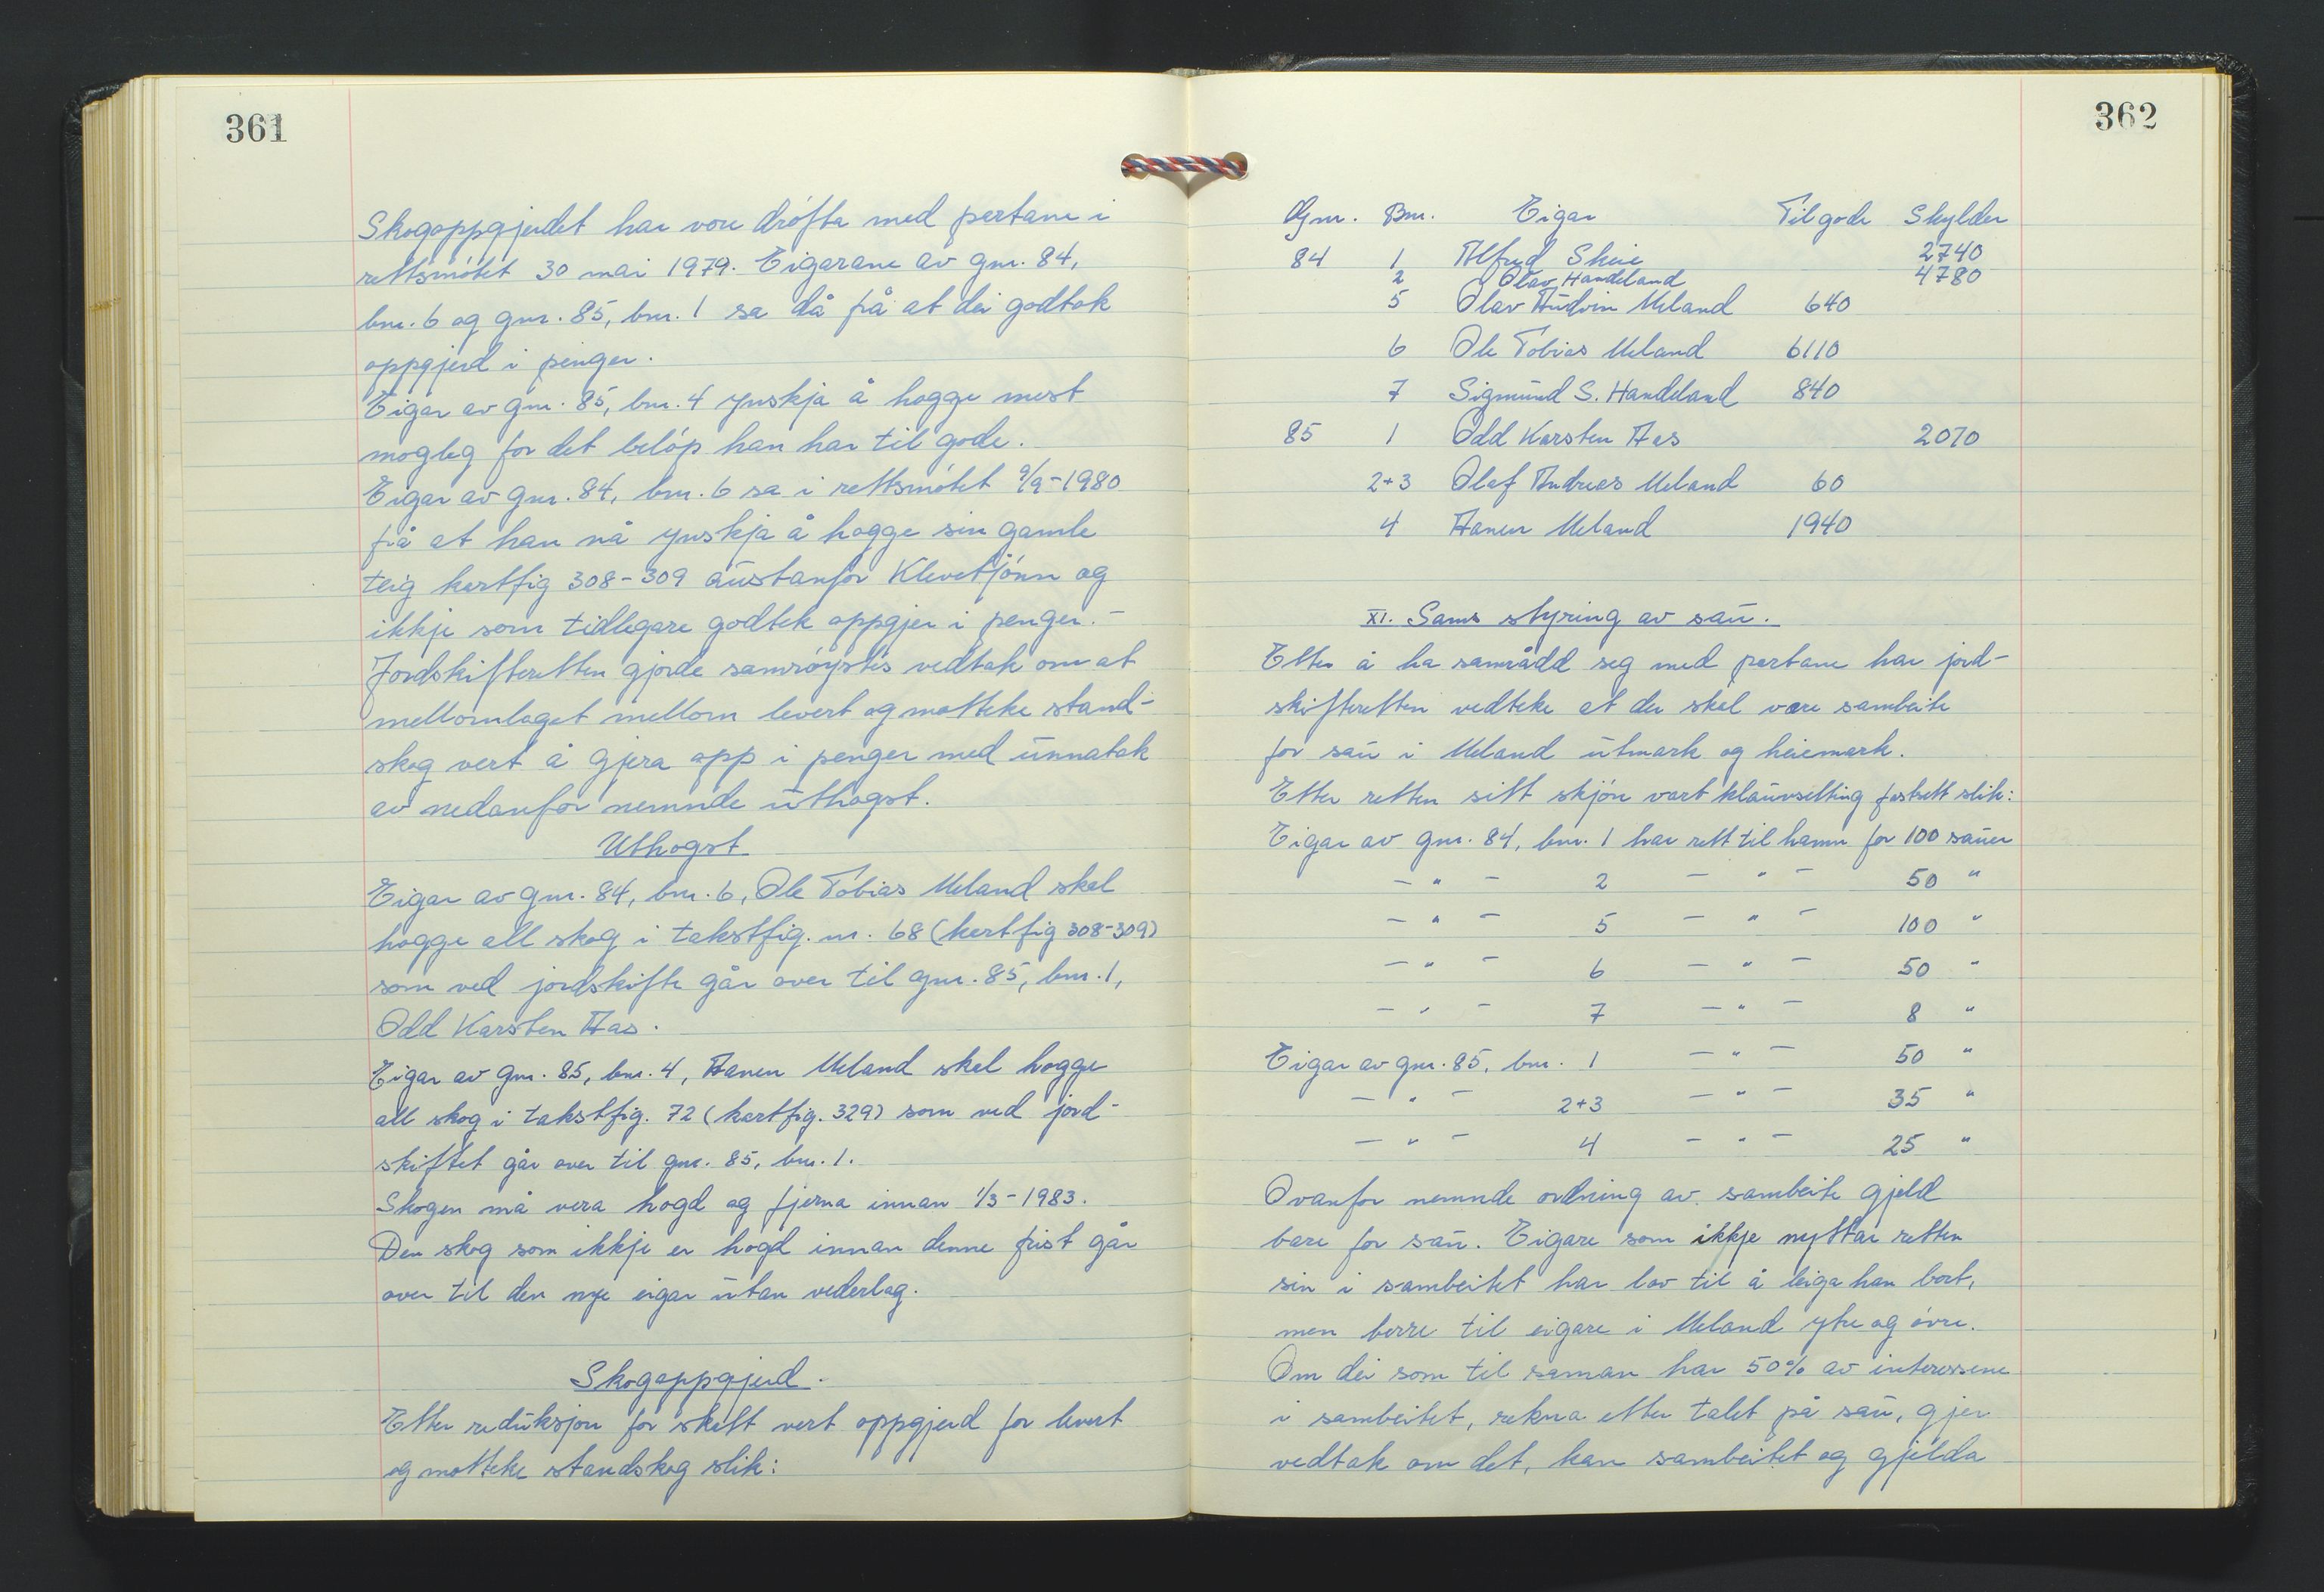 361
Skogoppgjerdet har vore drøfta med partane i
rettsmøtet 30 mai 1979. Eigarane av gnr. 84,
bnr. 6 og gnr. 85, bnr. 1 sa då frå at dei godtok
oppgjerd i pengar.
Eigar av gnr. 85, bnr. 4 ynskja å hogge mest
mogleg for det beløp han har til gode.
Eigar av gnr. 84, bnr. 6 sa i rettsmøtet 9/9-1980
frå at han nå ynskja å hogge sin gamle
teig kartfig 308-309 austanfor Klevetjønn og
ikkje som tidlegare godtek oppgjer i penger.-
Jordskifteretten gjorde samrøystes vedtak om at
mellomlaget mellom levert og motteke stand-
skog vert å gjera opp i penger med unnatak
av nedanfor nemnde uthogst.
Uthogst
Eigar av gnr. 84, bnr. 6, Ole Tobias Meland skal
hogge all skog i takstfig. nr. 68 (kartfig 308-309)
som ved jordskifte går over til gnr. 85, bnr. 1,
Odd Karsten Aas.
Eigar av gnr. 85, bnr. 4, Aanen Meland skal hogge
all skog i takstfig. 72 (kartfig. 329) som ved jord-
skiftet går over til gnr. 85, bnr. 1.
Skogen må vera hogd og fjerna innan 1/3-1983.
Den skog som ikkje er hogd innan denne frist går
over til den nye eigar utan vederlag.
Skogoppgjerd.
Etter reduksjon for skatt vert oppgjerd for levert
og motteke standskog slik:
362
Gnr. Bnr. Eigar Tilgode Skylder
84 1 Alfred Skeie 2740
2 Olav Handeland 4780
5 Olav Audvin Meland 640
6 Ole Tobias Meland 6110
7 Sigmund S. Handeland 840
85 1 Odd Karsten Aas 2070
2+3 Olaf Andreas Meland 60
4 Aanen Meland 1940
XI. Sams styring av sau.
Etter å ha samrådd seg med partane har jord-
skifteretten vedteke at der skal være sambeite
for sau i Meland utmark og heiemark.
Etter retten sitt skjøn vart klauvsetting fastsett slik:
Eigar av gnr. 84, bnr. 1 har rett til hamn for 100 sauer
- " - 2 - " - 50 "
- " - 5 - " - 100 "
- " - 6 - " - 50 "
- " - 7 - " - 8 "
Eigar av gnr. 85, bnr. 1 - " - 50 "
- " - 2+3 - " - 35 "
- " - 4 - " - 25 "
Ovanfor nemnde ordning av sambeite gjeld
bare for sau. Eigare som ikkje nyttar retten
sin i sambeitet har lov til å leiga han bort,
men berre til eigare i Meland ytre og øvre.
Om dei som til saman har 50% av interessene
i sambeitet, rekna etter talet på sau, gjer
vedtak om det, kan sambeitet og gjelda